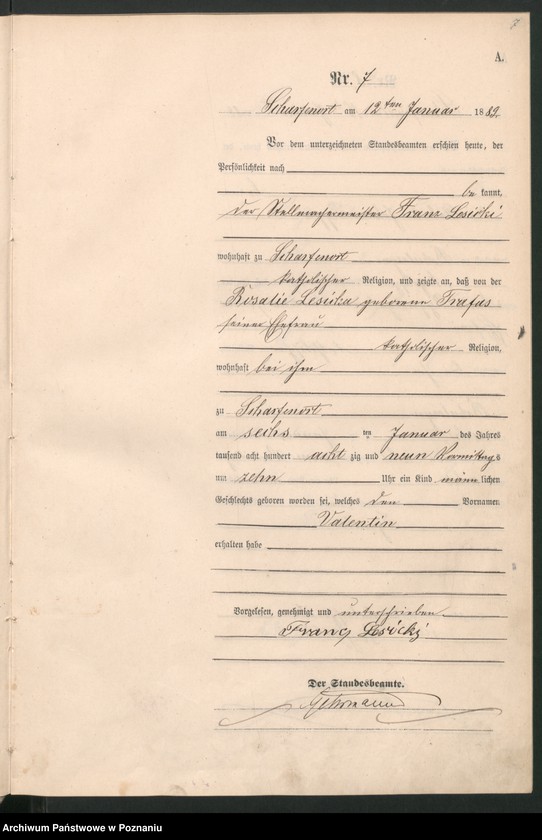 7
A.
Nr. 7
Scharfenort am 12ten Januar 1889.
Vor dem unterzeichneten Standesbeamten erschien heute, der
Persönlichkeit nach
be kannt,
der Stellmachermeister Franz Lesicki
wohnhaft zu Scharfenort
katholischer Religion, und zeigte an, daß von der
Rosalie Lesicka geborene Trafas
seiner Ehefrau
katholischer Religion,
wohnhaft bei ihm
zu Scharfenort
am sechs ten Januar des Jahres
tausend acht hundert acht zig und neun Vormittags
um zehn Uhr ein Kind männ lichen
Geschlechts geboren worden sei, welches den Vornamen
Valentin
erhalten habe
Vorgelesen, genehmigt und unterschrieben
Franz Lesicki
Der Standesbeamte.
Archiwum Państwowe w Poznaniu